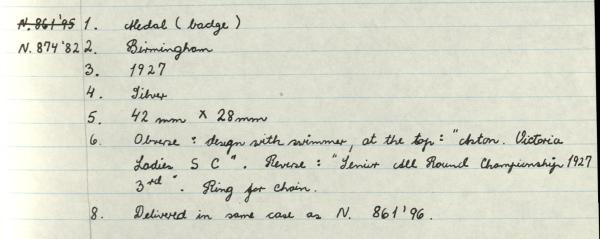 N. 861'95 1. Medal (badge)
N. 874'82 2. Birmingham
3. 1927
4. Silver
5. 42 mm X 28mm
6. Obverse : design with swimmer, at the top : "Aston. Victoria
Ladies S C". Reverse : "Senior All Round Championship 1927
3rd". Ring for chain.
8. Delivered in same case as N. 861'96.